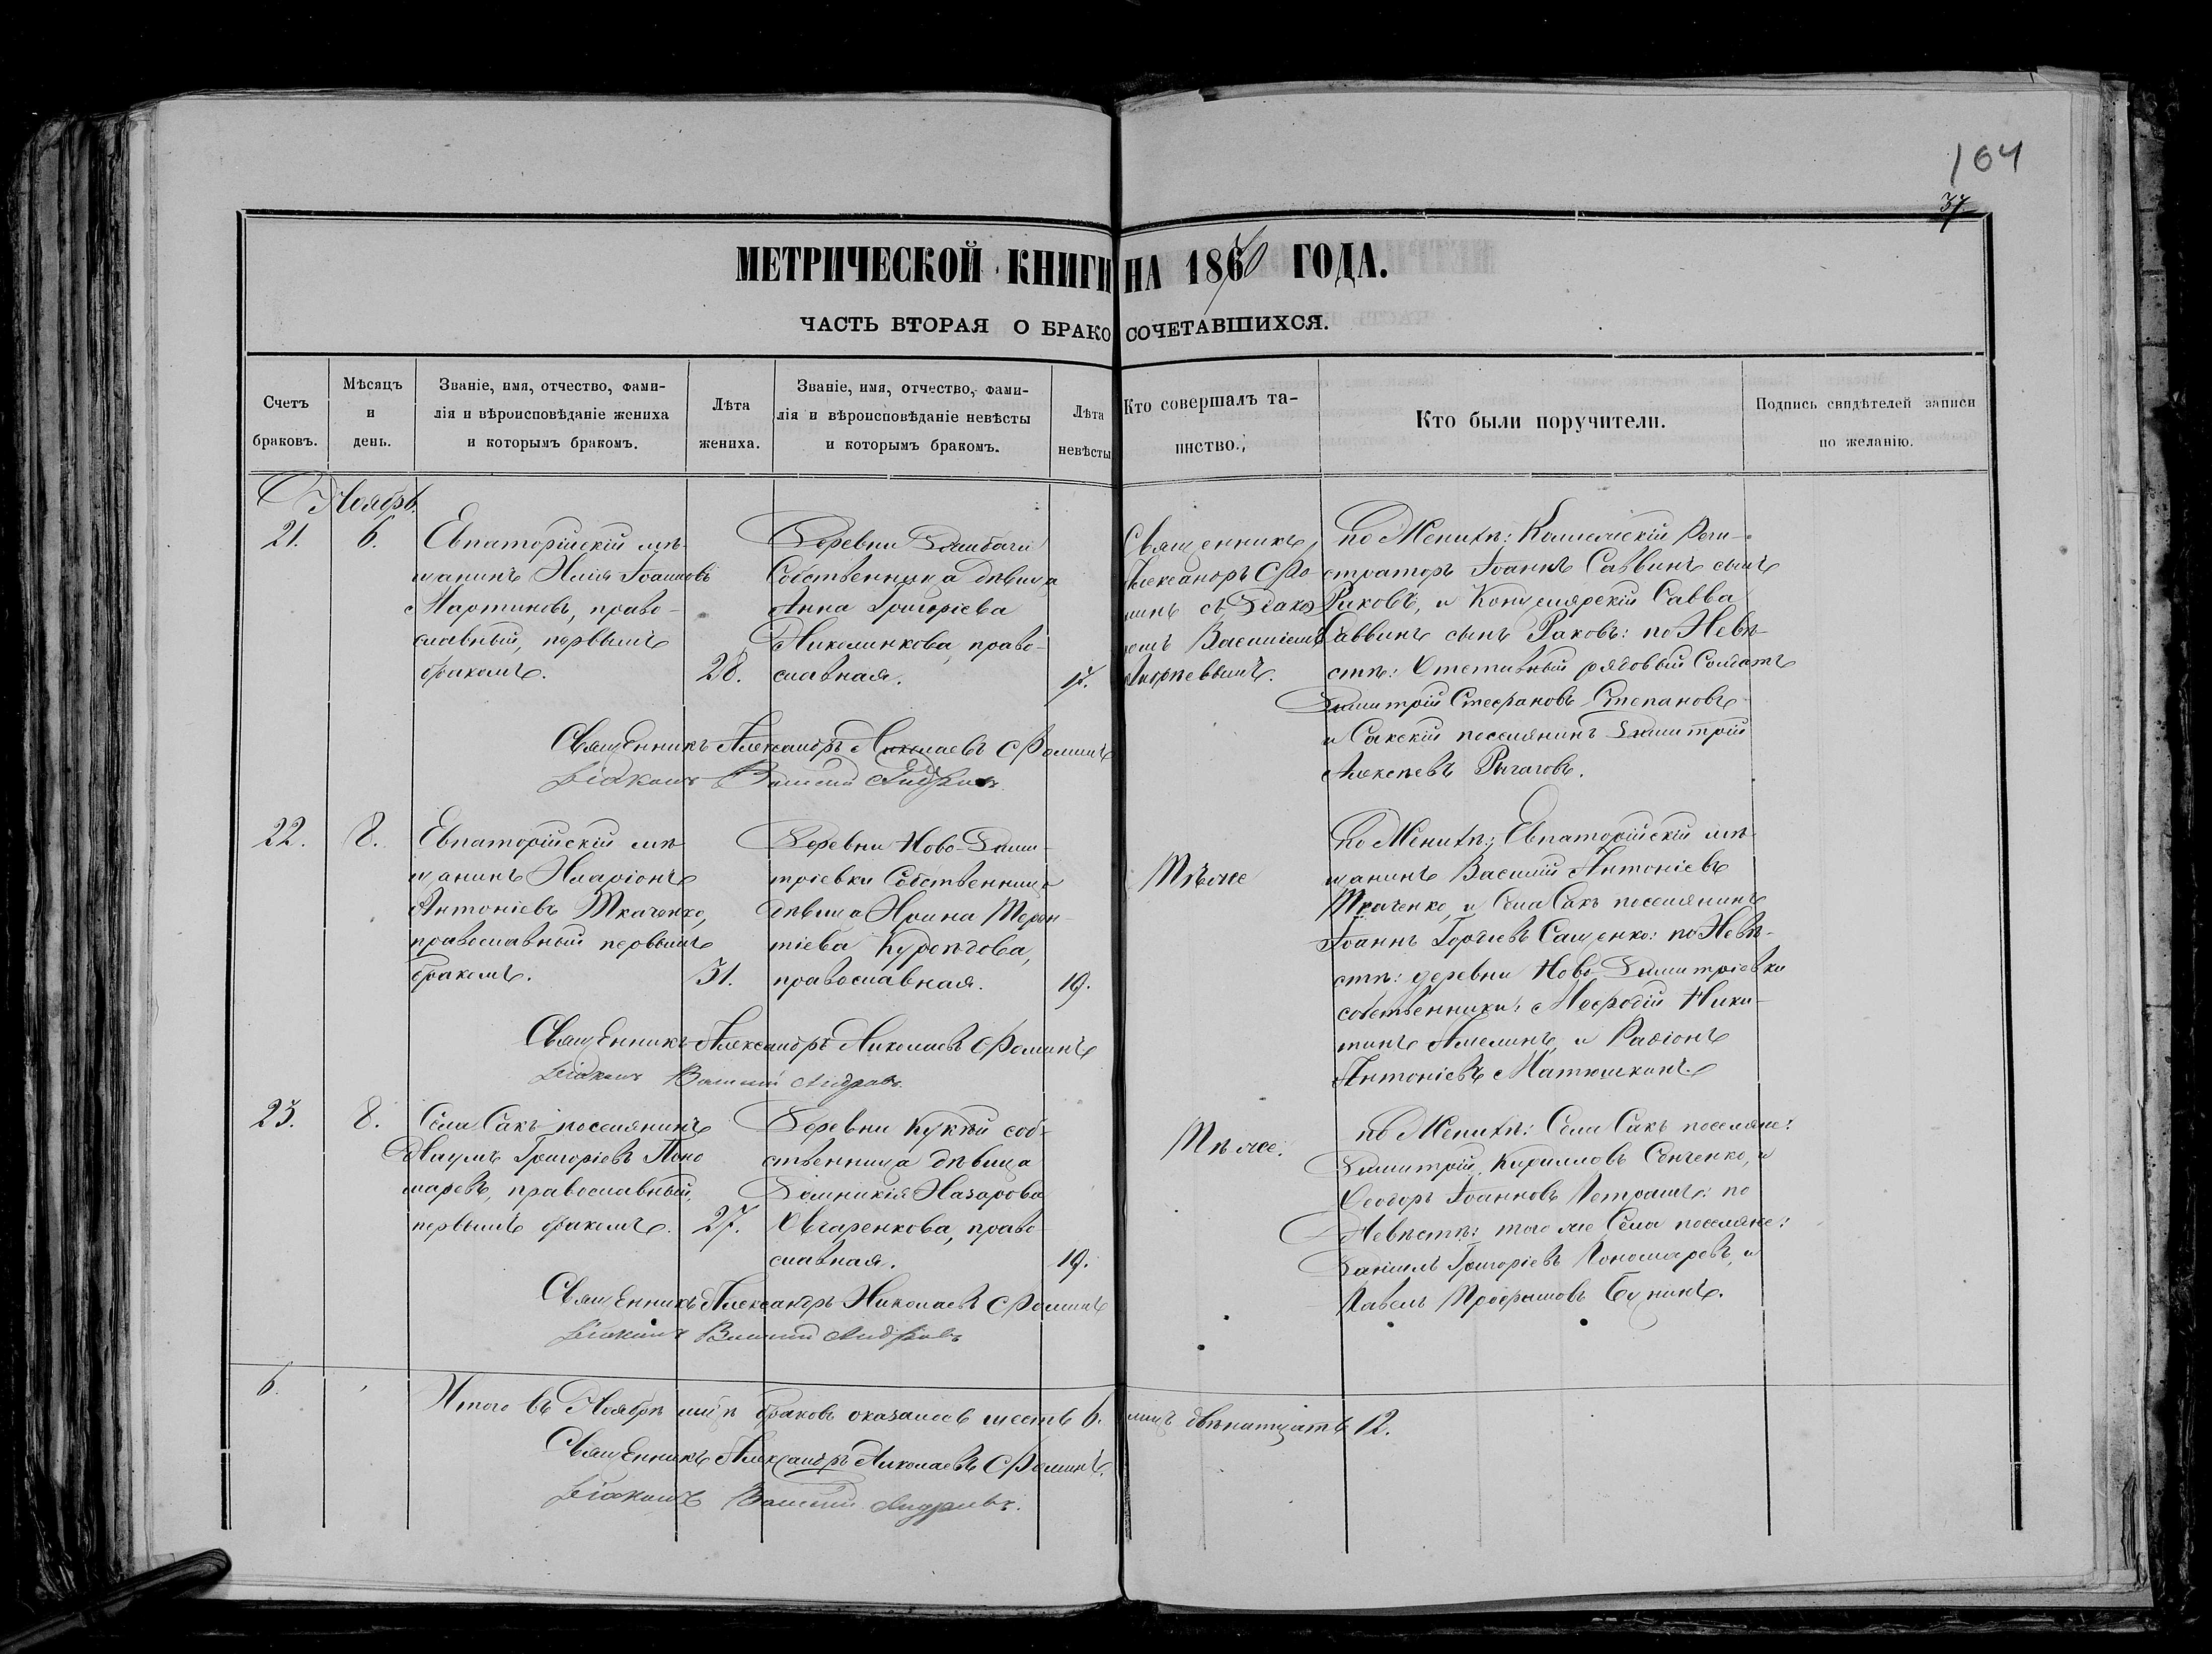 104
37.
МЕТРИЧЕСКОЙ КНИГИ НА 1870 ГОДА.
ЧАСТЬ ВТОРАЯ О БРАКОСОЧЕТАВШИХСЯ.
Счетъ браковъ.
Мѣсяцъ и день.
Званіе, имя, отчество, фами-
лія и вѣроисповѣданіе жениха
и которымъ бракомъ.
Лѣта жениха.
Званіе, имя, отчество, фами-
лія и вѣроисповѣданіе невѣсты
и которымъ бракомъ.
Лѣта невѣсты
Кто совершалъ та-
инство.
Кто были поручители.
Подпись свидѣтелей записи
по желанію.
Ноябрь.
21.
6.
Евпаторійскій мѣ-
щанинъ Илія Іоанновъ
Мартиновъ, право-
славный, первымъ
бракомъ.
28.
Деревни
Собственница дѣвица
Анна Григоріева
право-
славная.
17.
Священникъ
Александръ Фо-
минъ съ Діако-
номъ Василіемъ
по Женихѣ: Коллежскій Реги-
страторъ Іоаннъ Саввинъ сынъ
Раковъ, и Канцелярскій Савва
Саввинъ сынъ Раковъ: по Невѣ-
стѣ: Отставный рядовый Солдатъ
Димитрій Стефановъ Степановъ
и Сакскій поселянинъ Димитрій
Алексѣевъ Рычаговъ.
Священникъ Александръ Николаевъ Фоминъ
Діаконъ Василій
22.
8.
Евпаторійскій мѣ-
щанинъ Иларіонъ
Антоніевъ Ткаченко,
православный первымъ
бракомъ.
31.
Деревни Ново-Дими-
тріевки Собственница
дѣвица Ирина Терен-
тіева
православная.
19.
Тѣже
по Женихѣ: Евпаторійскій мѣ-
щанинъ Василій Антоніевъ
Ткаченко, и Села Сакъ поселянинъ
Іоаннъ Сащенко: по Невѣ-
стѣ: деревни Ново-Димитріевки
собственники: Меѳодій Ники-
тинъ Амелинъ, и Радіонъ
Антоніевъ Матюшкинъ.
Священникъ Александръ Николаевъ Фоминъ
Діаконъ Василій
23.
8.
Села Сакъ поселянинъ
Наумъ Григоріевъ Поно
маревъ, православный,
первымъ бракомъ.
27.
Деревни соб-
ственница дѣвица
Домникія Назарова
Овчаренкова, право-
славная.
19.
Тѣже.
по Женихѣ: Села Сакъ поселяне:
Димитрій Кирилловъ Сенченко, и
Ѳеодоръ Іоанновъ Петрашъ: по
Невѣстѣ: того же Села поселяне:
Даніилъ Григоріевъ Пономаревъ, и
Павелъ Трофимовъ
Священникъ Александръ Николаевъ Фоминъ
Діаконъ Василій
6.
Итого въ Ноябрѣ м-цѣ браковъ оказалось шесть 6. лицъ двѣнатцать 12.
Священникъ Александръ Николаевъ Фоминъ.
Діаконъ Василій